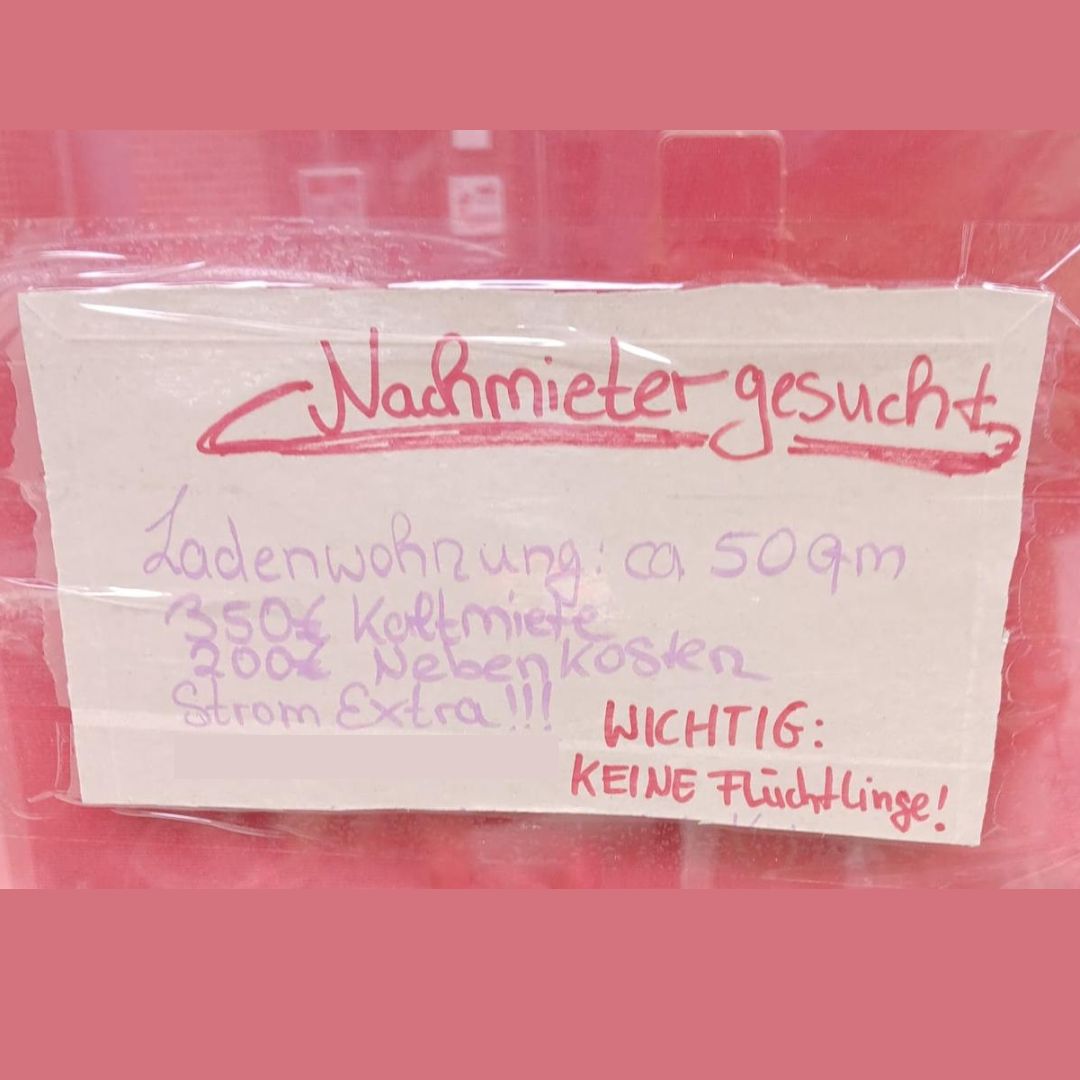 Nachmieter gesucht
Ladenwohnung: ca 50 qm
350€ Kaltmiete
200€ Nebenkosten
Strom Extra!!!
WICHTIG:
KEINE Flüchtlinge!